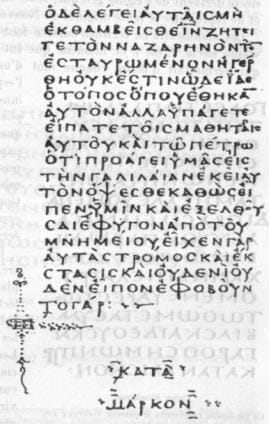 ΟΔΕΛΕΓΕΙΑΥΤΑΙϹΜΗ
ΕΚΘΑΜΒΕΙϹΘΕΙΝΖΗΤΕΙ
ΤΕΤΟΝΝΑΖΑΡΗΝΟΝΤΟ̅
ΕϹΤΑΥΡΩΜΕΝΟΝΗΓΕΡ
ΘΗΟΥΚΕϹΤΙΝΩΔΕΙΔΕ
ΟΤΟΠΟϹΟΠΟΥΕΘΗΚΑ̅
ΑΥΤΟΝΑΛΛΑΥΠΑΓΕΤΕ
ΕΙΠΑΤΕΤΟΙϹΜΑΘΗΤΑΙϹ
ΑΥΤΟΥΚΑΙΤΩΠΕΤΡΩ
ΟΤΙΠΡΟΑΓΕΙΥΜΑϹΕΙϹ
ΤΗΝΓΑΛΙΛΑΙΑΝΕΚΕΙΑΥ
ΤΟΝΟΨΕϹΘΕΚΑΘΩϹΕΙ
ΠΕΝΥΜΙΝΚΑΙΕΞΕΛΘΟΥ
ϹΑΙΕΦΥΓΟΝΑΠΟΤΟΥ
ΜΝΗΜΕΙΟΥΕΙΧΕΝΓΑΡ
ΑΥΤΑϹΤΡΟΜΟϹΚΑΙΕΚ
ϹΤΑϹΙϹΚΑΙΟΥΔΕΝΙΟΥ
ΔΕΝΕΙΠΟΝΕΦΟΒΟΥΝ
ΤΟΓΑΡ:
ΚΑΤΑ
ΜΑΡΚΟΝ